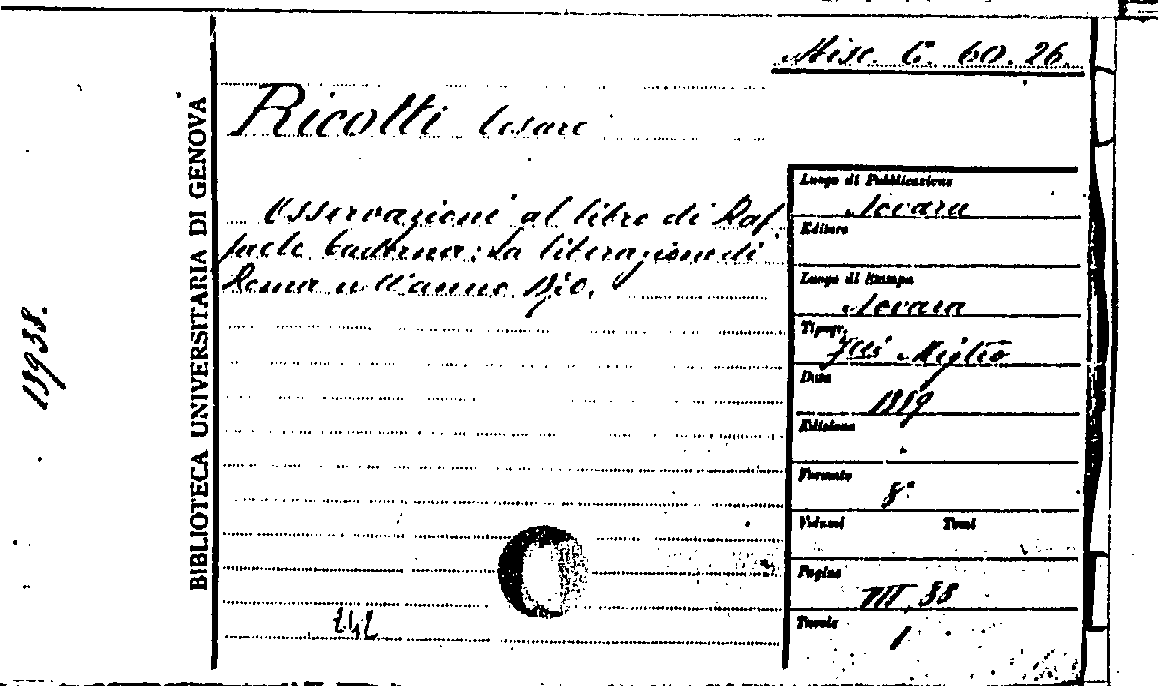 Misc. C. 60. 26.
Ricotti Cesare
Osservazioni al libro di Raf
faele Cadorna: La liberazione di
Roma nell'anno 1870.
BIBLIOTECA UNIVERSITARIA DI GENOVA
13938.
Luogo di Pubblicazione
Novara
Editore
Luogo di Stampa
Novara
Tipogr.
Flli Miglio
Data
1889
Edizione
Formato
8°
Volumi Tomi
Pagine
38
Tavole
1